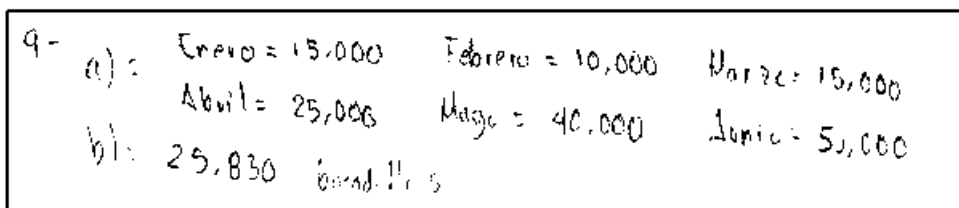 9- a) = Enero = 15,000 Febrero = 10,000 Marzo = 15,000
Abril = 25,000 Mayo = 40,000 Junio = 50,000
b) = 25,830